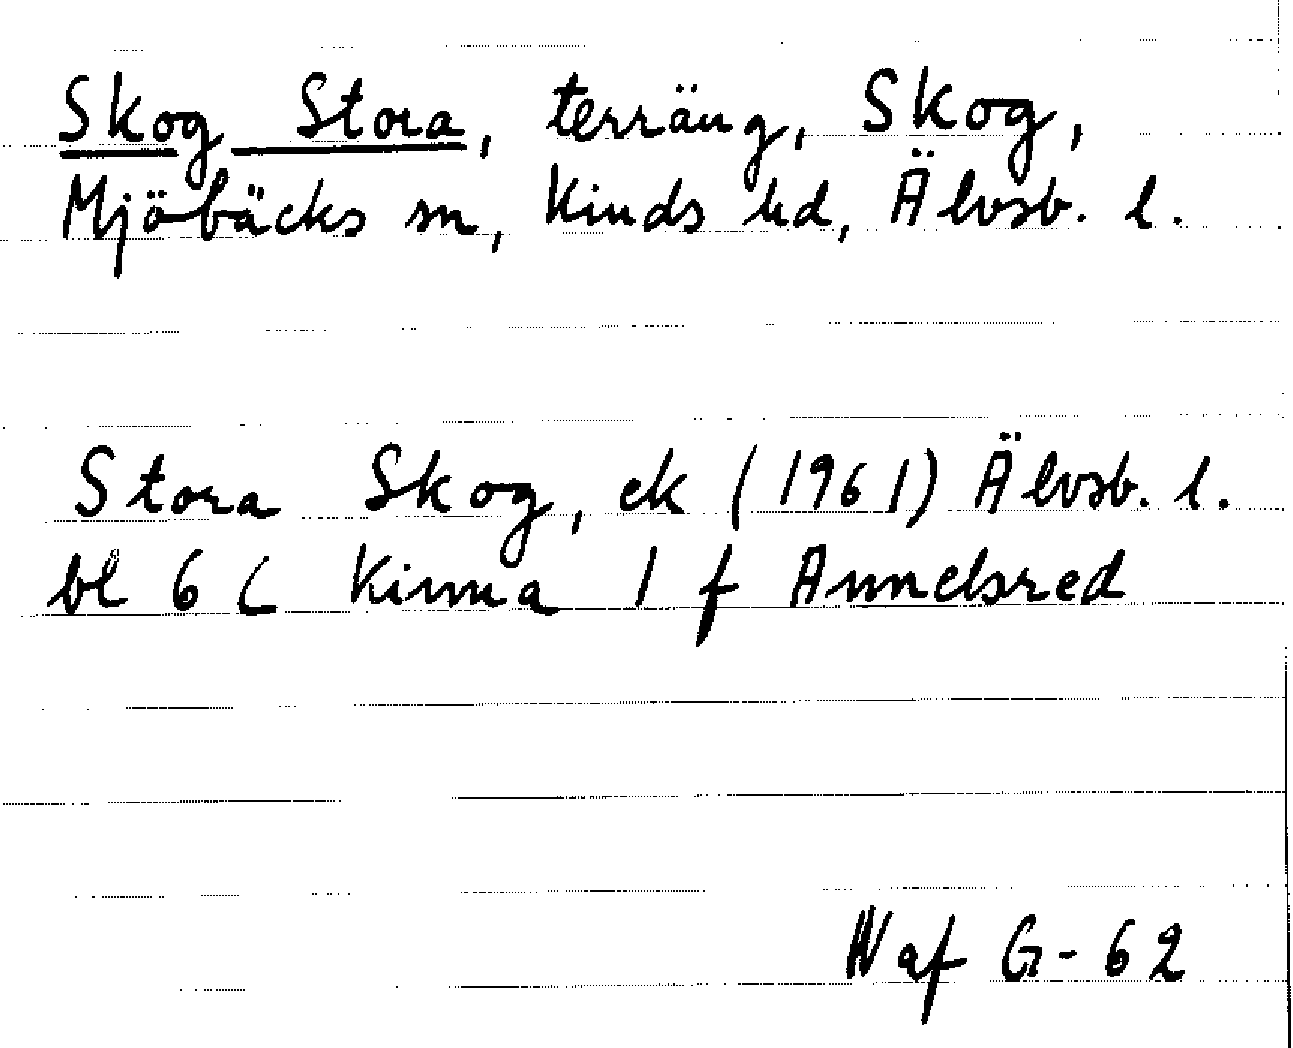 Skog Stora, terräng, Skog,
Mjöbäcks sn, Kinds hd, Älvsb. l.
Stora Skog, ek (1961) Älvsb. l.
bl 6 C Kinna 1 f Annelsred
W af G-62